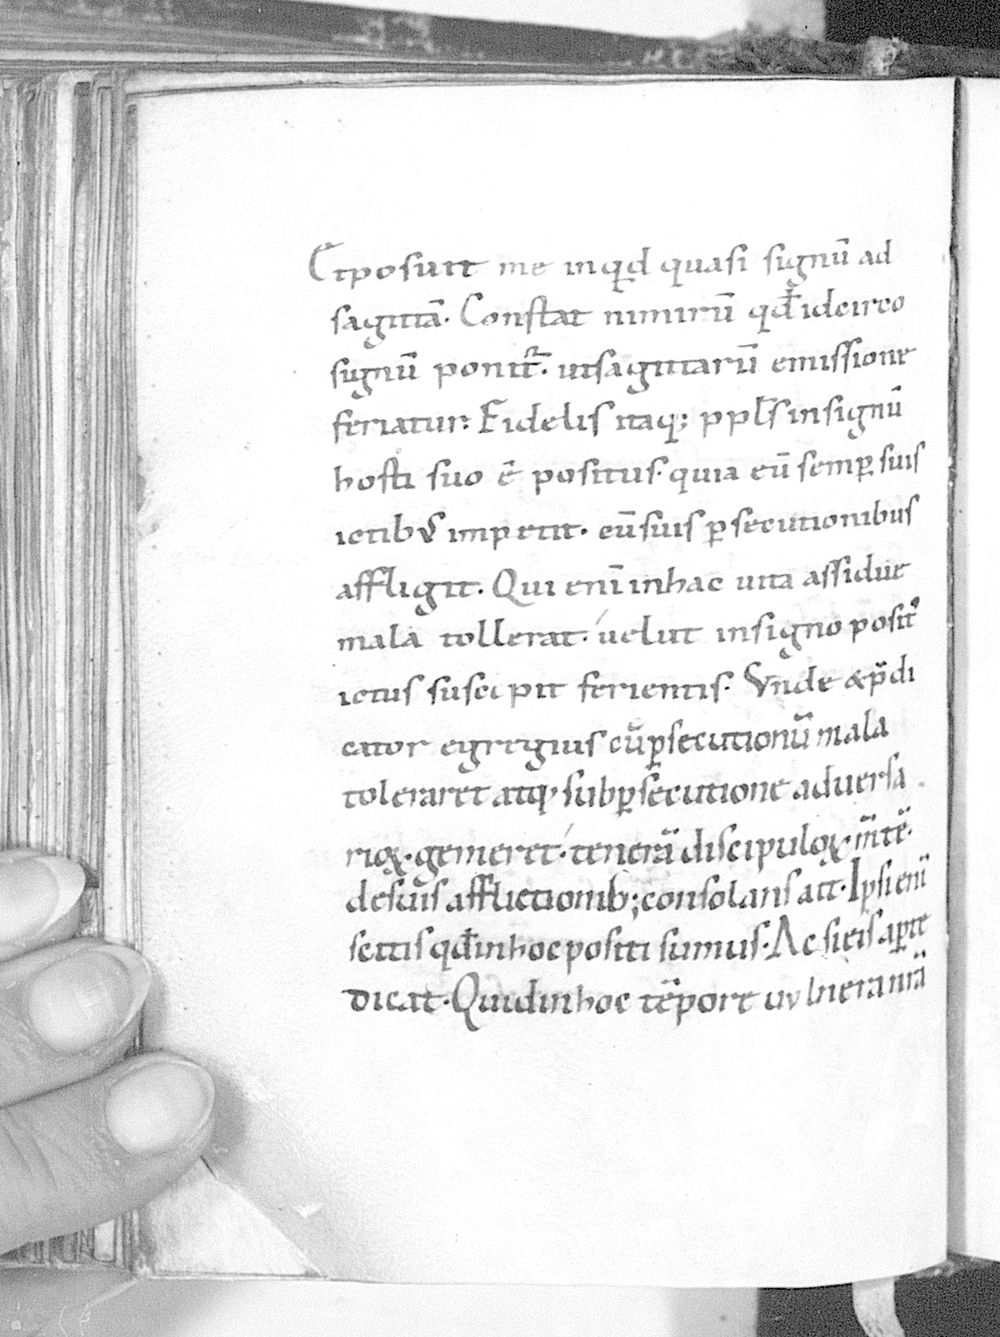 Et posuit me inq̇d quasi signū ad
sagittā. Constat nimirū qđ idcirco
signū ponit᷑. ut sagittarū emissione
feriatur. Fidelis itaq; ppl̄s in signū
hosti suo ē positus. quia eū semꝑ suis
ictibus impetit. eū suis ꝑsecutionibus
affligit. Qui enī in hac uita assidue
mala tollerat. uelut in signo posit᷒
ictus suscipit ferientis. Vnde & p̄di
cator egregius cū ꝑsecutionū mala
toleraret atq; sub ꝑsecutione aduersa
rioꝝ. gemeret. tenerā discipuloꝝ m̄tē.
de suis afflictionib; consolans ait. Ipsi enī
scitis qđ in hoc positi sumus. Ac si eis aꝑte
dicat. Quid in hoc tēpore uulnera nr̄a